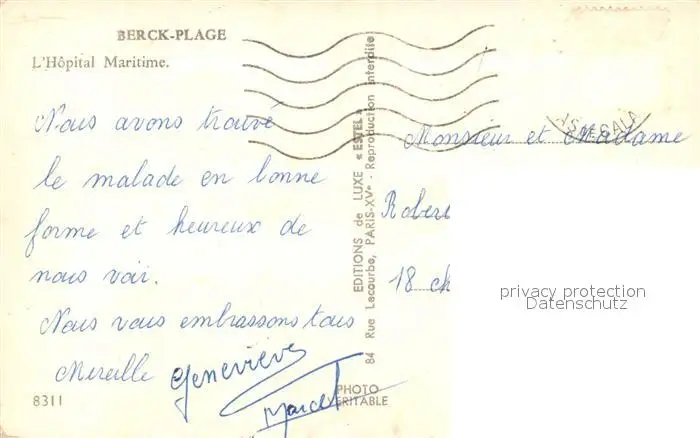 BERCK-PLAGE
L'Hôpital Maritime.
Nous avons trouvé
le malade en bonne
forme et heureux de
nous voir.
Nous vous embrassons tous
Mireille Geneviève
Marcel
8311
EDITIONS de LUXE « ESTEL »
84 Rue Lecourbe, PARIS-XVe - Reproduction interdite
PHOTO
VÉRITABLE
Monsieur et Madame
Rober
18 ch
privacy protection
Datenschutz